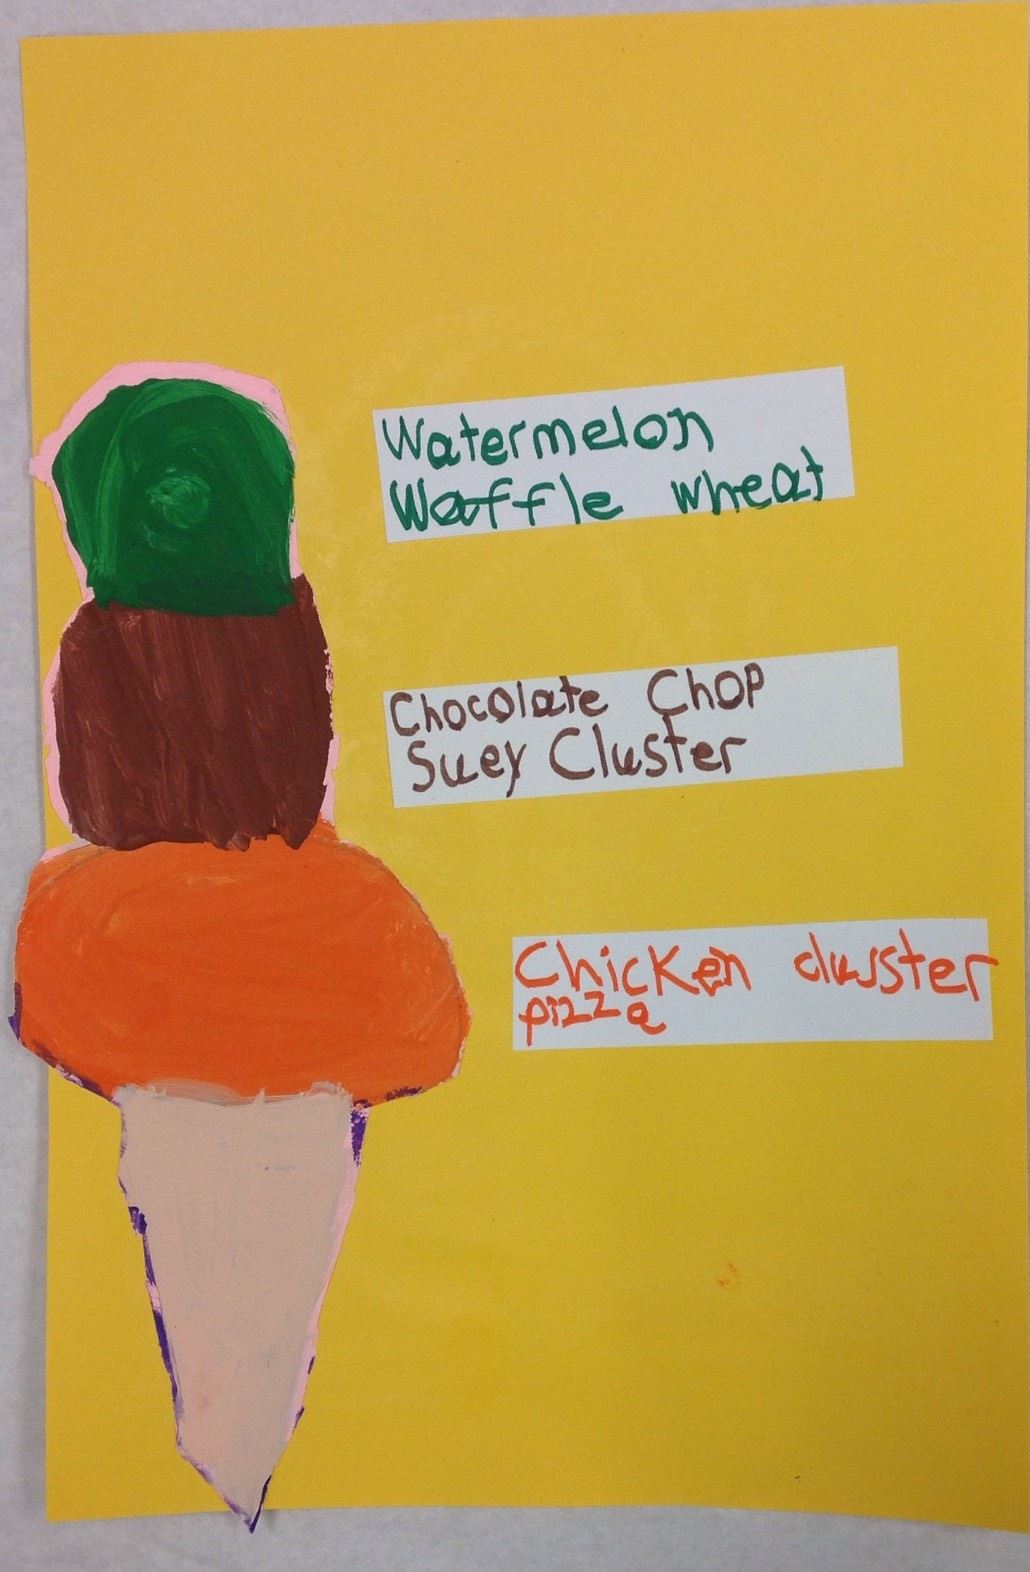 Watermelon
Waffle wheat
Chocolate Chop
Suey Cluster
Chicken clusster
pizza